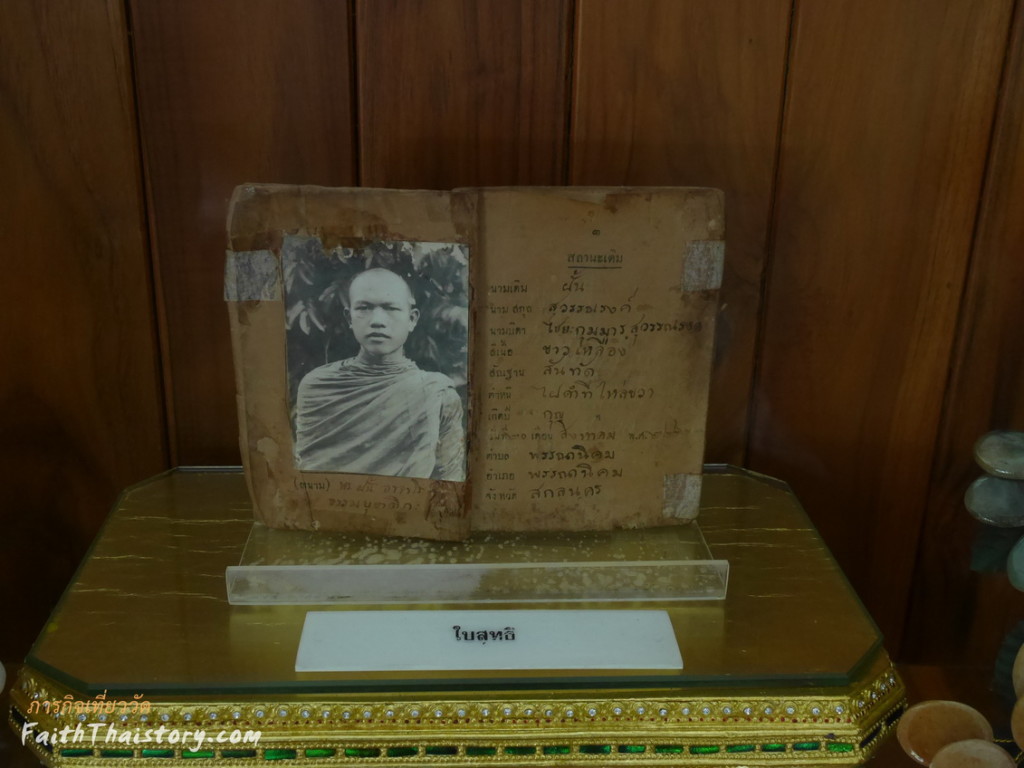 ๒
สถานะเดิม
นามเดิม ฝั้น
นาม สกุล สุวรรณรงค์
นามบิดา ไชยะกุมมาร สุวรรณรงค์
สีเนื้อ ขาวเหลือง
สัณฐาน สันทัด
ตำหนิ
เกิดปี กุญ
เดือน สิงหาคม
ตำบล พรรณานิคม
อำเภอ พรรณานิคม
จังหวัด สกลนคร
(ฉายา) พระ ฝั้น อาจาโร
ใบสุทธิ
ภารกิจเที่ยววัด
FaithThaistory.com